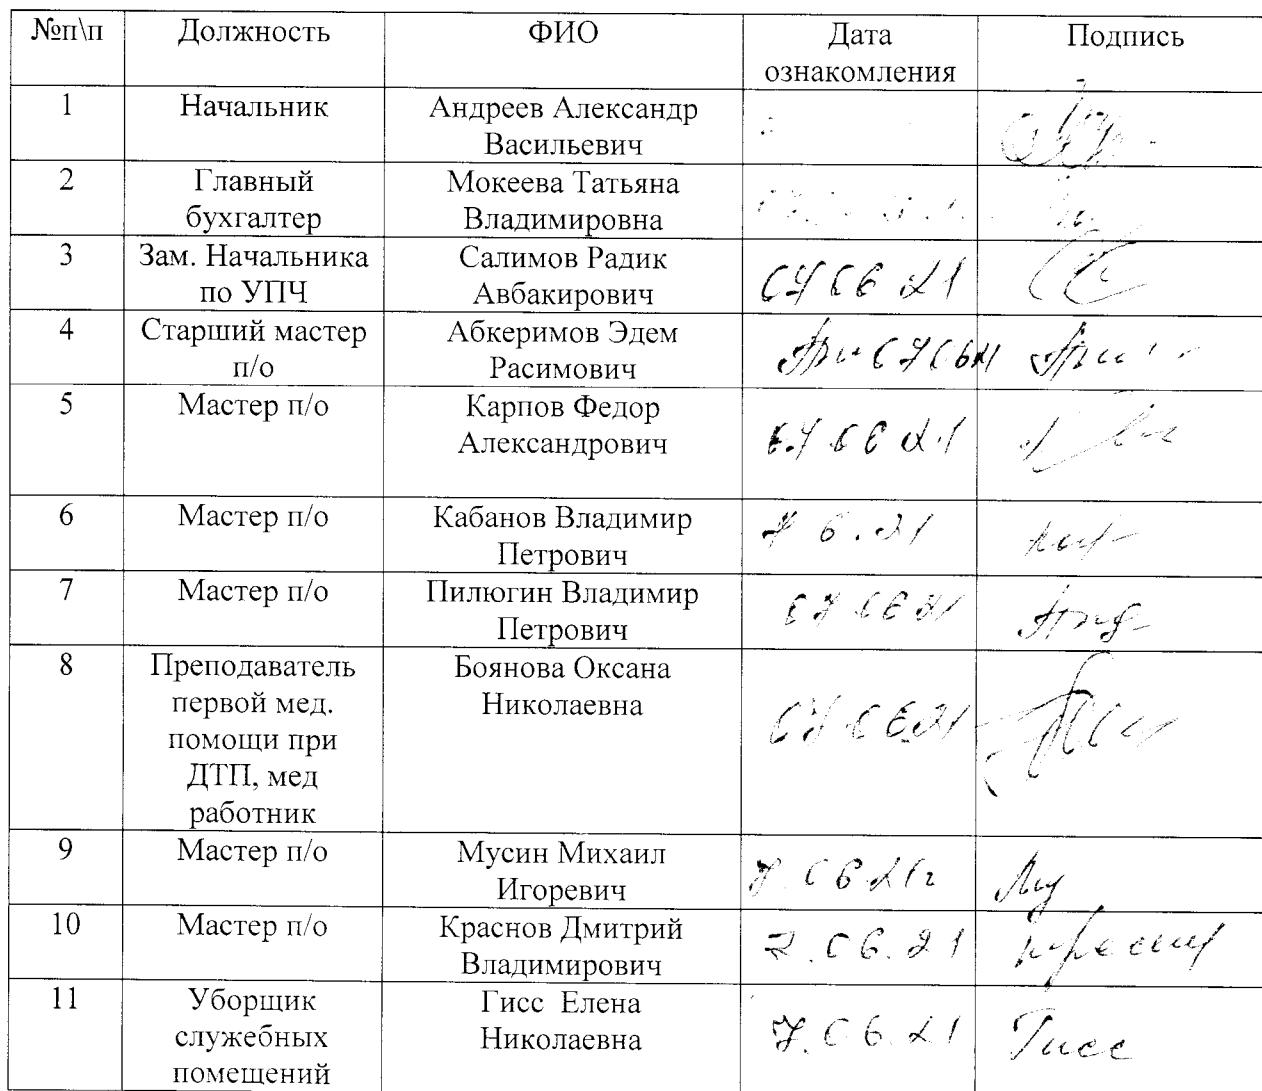 №п\п Должность ФИО Дата ознакомления Подпись
1 Начальник Андреев Александр Васильевич
2 Главный бухгалтер Мокеева Татьяна Владимировна
3 Зам. Начальника по УПЧ Салимов Радик Авбакирович 07 06 21
4 Старший мастер п/о Абкеримов Эдем Расимович 07 06 21
5 Мастер п/о Карпов Федор Александрович 07 06 21
6 Мастер п/о Кабанов Владимир Петрович 7 6.21
7 Мастер п/о Пилюгин Владимир Петрович 07 06 21
8 Преподаватель первой мед. помощи при ДТП, мед работник Боянова Оксана Николаевна 07 06.21
9 Мастер п/о Мусин Михаил Игоревич 7.06 21г
10 Мастер п/о Краснов Дмитрий Владимирович 7.06.21
11 Уборщик служебных помещений Гисс Елена Николаевна 7.06.21 Гисс